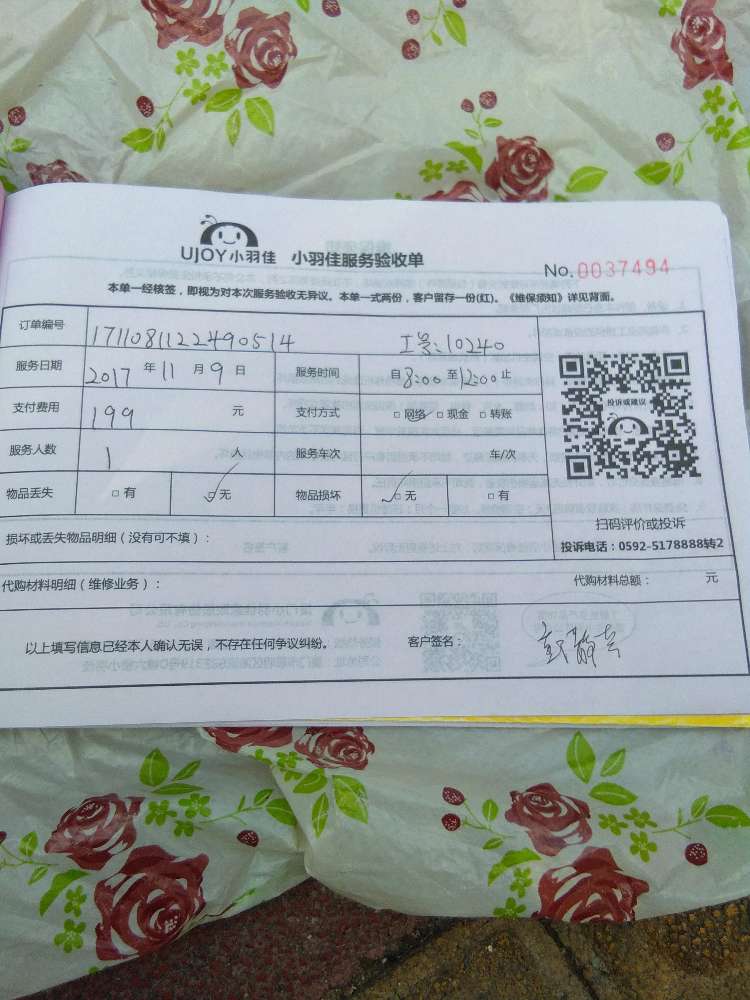 UJOY小羽佳 小羽佳服务验收单
No.0037494
本单一经核签，即视为对本次服务验收无异议。本单一式两份，客户留存一份(红)。《维保须知》详见背面。
订单编号 1711081122490514 工号:10240
服务日期 2017 年 11 月 9 日 服务时间 自 8:00 至 12:00 止
支付费用 199 元 支付方式 □网络 □现金 □转账
服务人数 1 人 服务车次 车/次
物品丢失 □有 □无 物品损坏 □无 □有
投诉或建议
扫码评价或投诉
投诉电话：0592-5178888转2
损坏或丢失物品明细（没有可不填）：
代购材料明细（维修业务）： 代购材料总额： 元
以上填写信息已经本人确认无误，不存在任何争议纠纷。 客户签名：